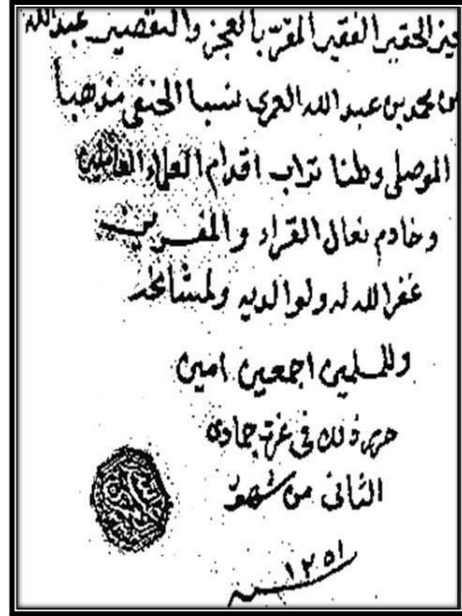 الحقير الفقير المقر بالعجز والتقصير عبد الله
بن محمد بن عبد الله العمري نسبا الحنفي مذهباً
الموصلي وطنا تراب اقدام العلماء العاملين
وخادم نعال القراء والمقرين
غفر الله له ولوالديه ولمشائخه
وللمسلمين اجمعين امين
حرر ذلك في غرة جمادى
الثاني من شهور
سنة ١٢٥١